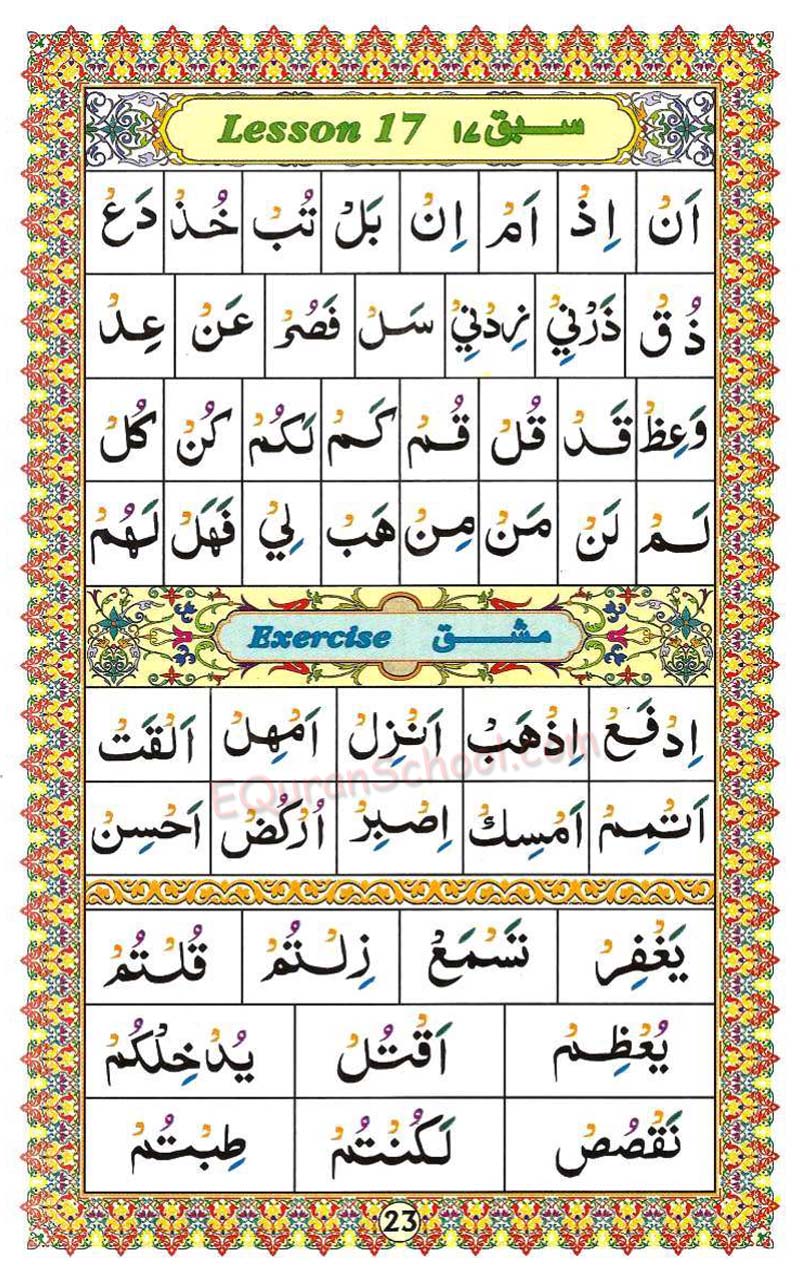 Lesson 17 سبق ١٧
اَنْ اِذْ اَمْ اِنْ بَلْ تُبْ خُذْ دَعْ
ذُقْ ذَرْنِيْ زِدْنِيْ سَلْ فَصُرْ عَنْ عِدْ
وَعِظْ قَدْ قُلْ قُمْ كَمْ لَكُمْ كُنْ كُلْ
لَمْ لَنْ مَنْ مِنْ هَبْ لِيْ فَهَلْ لَهُمْ
Exercise مشق
اِدْفَعْ اِذْهَبْ اَنْزِلْ اَمْهِلْ اَلْقَتْ
EQuranSchool.com
اَتْمِمْ اَمْسِكْ اِصْبِرْ اُرْكُضْ اَحْسِنْ
يَغْفِرْ تَسْمَعْ زِلْتُمْ قُلْتُمْ
يُعْظِمْ اَقْتُلْ يُدْخِلْكُمْ
نَقْصُصْ لَكُنْتُمْ طِبْتُمْ
23